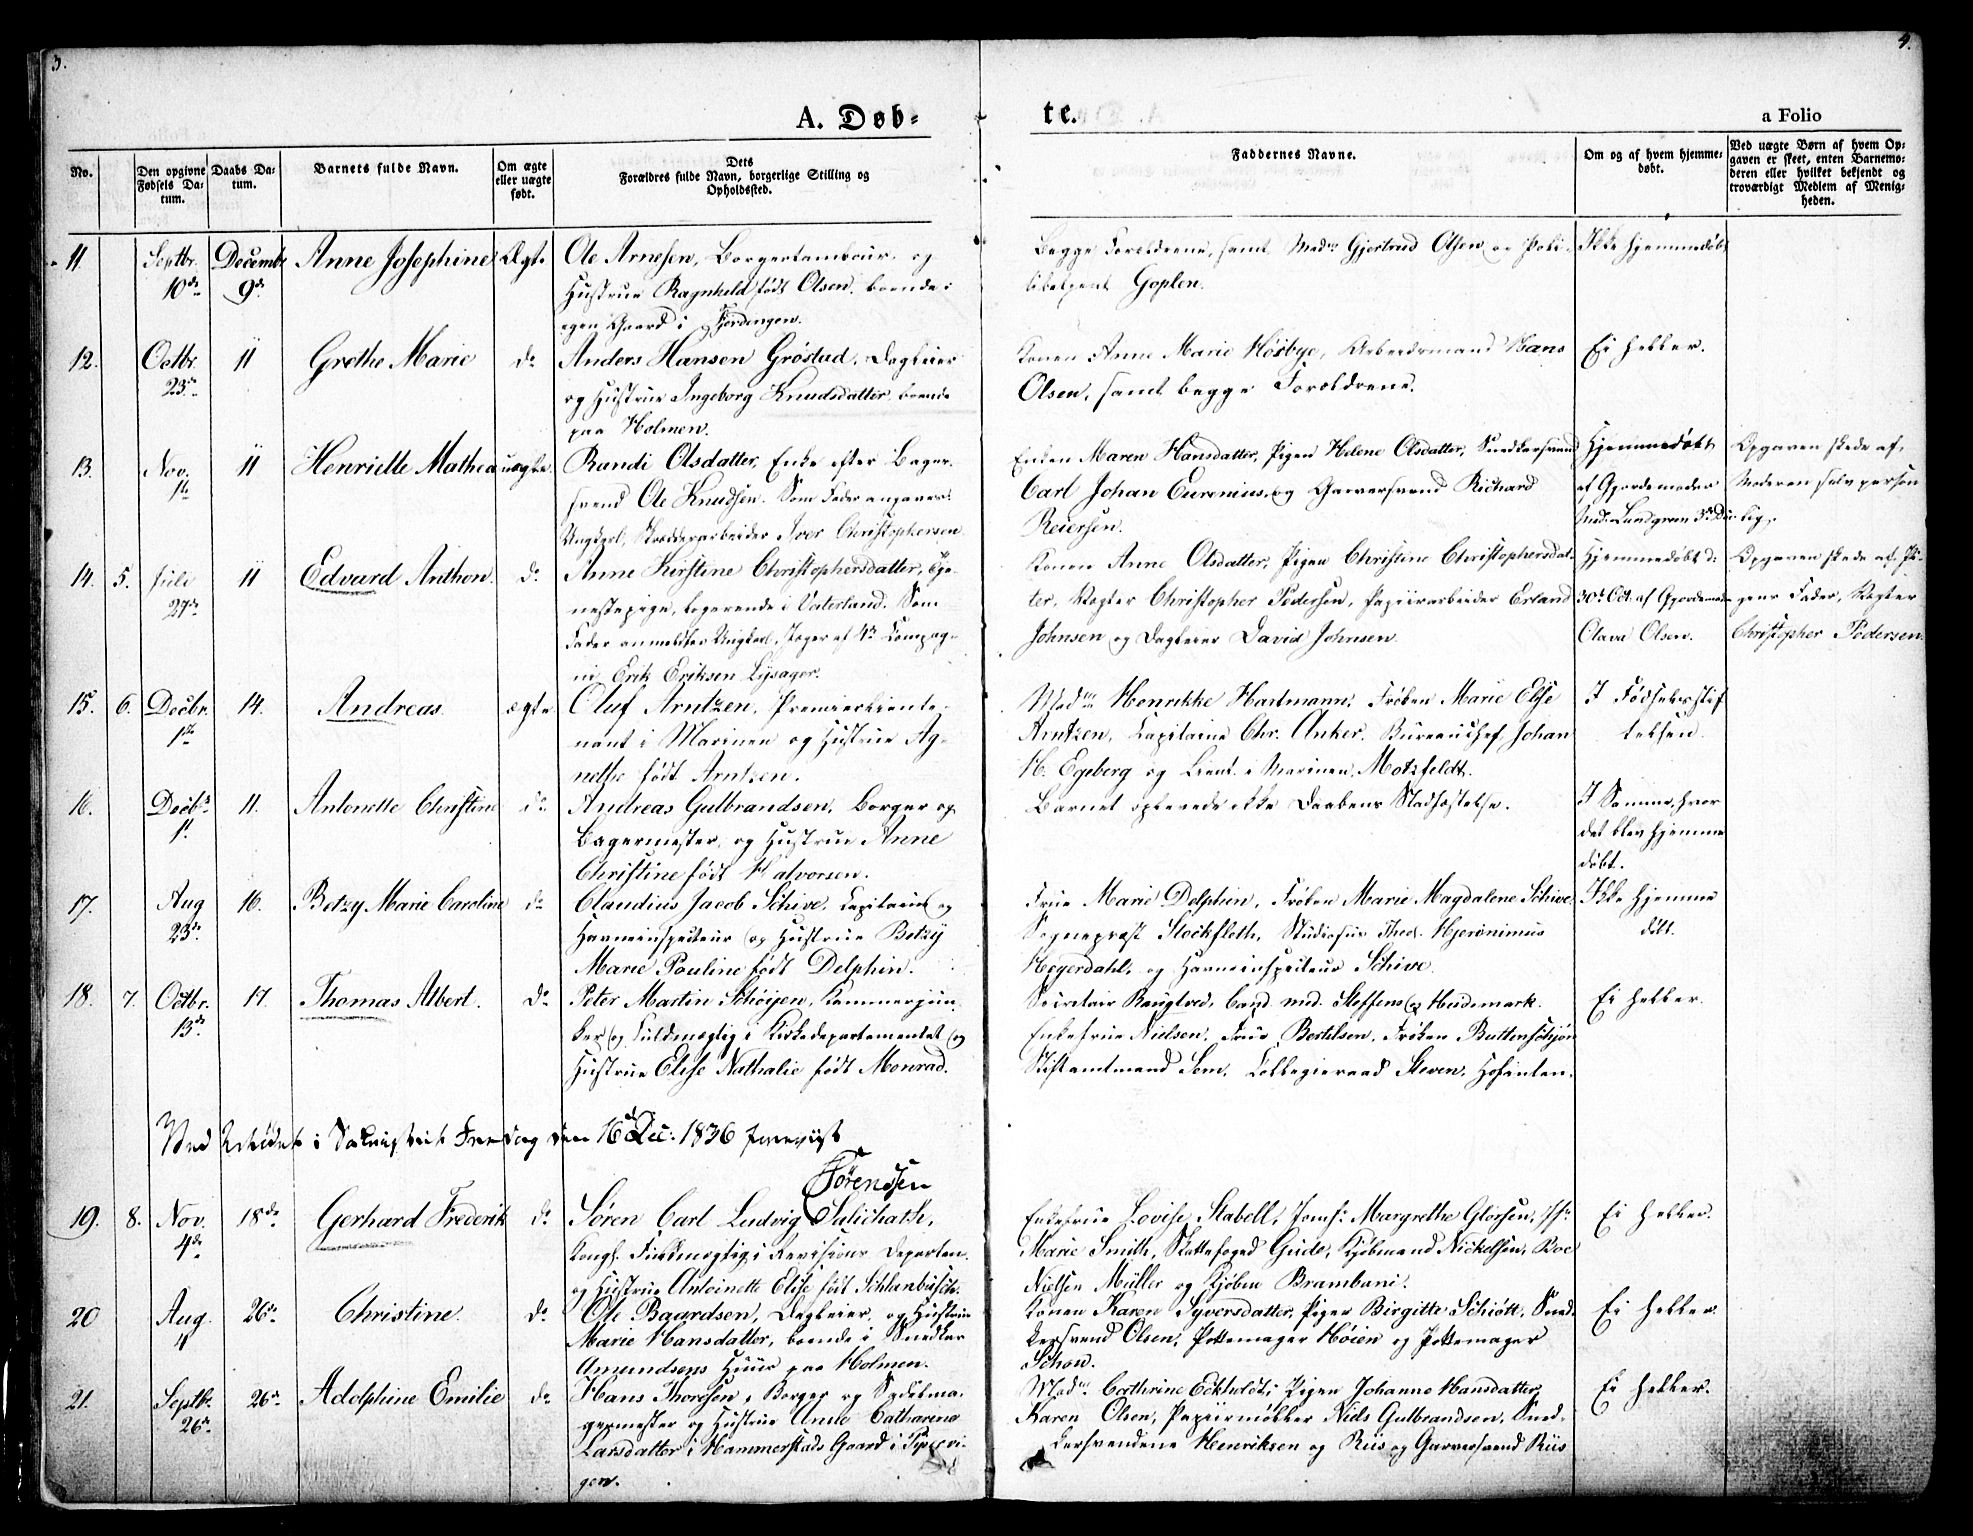 3.
4.
A. Døb-
te.
a Folio
No.
Den opgivne Fødsels Da-
tum.
Daabs Da-
tum.
Barnets fulde Navn.
Om ægte eller uægte født.
Dets
Forældres fulde Navn, borgerlige Stilling og
Opholdssted.
Faddernes Navne.
Om og af hvem hjemme-
døbt.
Ved uægte Børn af hvem Op-
gaven er skeet, enten Barnemo-
deren eller hvilket bekjendt og
troværdigt Medlem af Menig-
heden.
11. Septbr. 10de Decembr 9de Anne Josephine Ægte
Ole Arnesen, Borgertambour og
Hustrue Ragnhild født Olsen, boende i
egen Gaard i Fjerdingen.
Begge Forældrene, samt Mad. Gjertrud Olsen og Poli-
tibetjent Goplen.
Ikke hjemmedøbt
12. Octbr. 23de 11 Grethe Marie do
Anders Hansen Grøstad, Dagleier
og Hustrue Ingeborg Knudsdatter boende
paa Holmen.
Konen Anne Marie Høibye, Arbeidsmand Hans
Olsen, samt begge Forældrene.
Ei heller.
13. Nov. 11 Henriette Mathea uægte.
Randi Olsdatter, Enke efter Bager-
svend Ole Knudsen. Som Fader angaves:
Ungkarl, Skrædderarbeider Iver Christophersen
Enken Maren Hansdatter, Pigen Helene Olsdatter, Snedkersvend
Carl Johan Eurenius, og Garversvend Richard
Reiersen.
Hjemmedøbt
af Gjordemoder
Mad. Lundgreen
Opgaven skede af
Moderen selv person
lig.
14. 5. Juli 27de 11 Edvard Anthon. do
Anne Kirstine Christophersdatter, Tje-
nestepige, logerende i Vaterland. Som
Fader anmeldtes Ungkarl, Jæger af 4de Compag-
ni Erik Eriksen Lysager.
Konen Anne Olsdatter, Pigen Christine Christophersdat-
ter, Vægter Christopher Pedersen, Papiirarbeider Erland
Johnsen og Dagleier David Johnsen.
Hjemmedøbt d:
30te Oct. af Gjordemoder
Clara Olsen.
Opgaven skede af Pi-
gens Fader, Vægter
Christopher Pedersen.
15. 6. Decbr. 1ste 14. Andreas. ægte
Oluf Arntzen, Premierlieute-
nant i Marinen og Hustrue Ag-
nethe født Arntzen.
Mad. Henrikke Hartmann, Frøken Marie Elise
Arntzen, Capitaine Chr. Anker, Bureauchef Johan
H. Egeberg og Lieut. i Marinen Motzfeldt.
I Fødselsstif
telsen.
16. Decbr 1st 11. Antonette Christine do
Andreas Gulbrandsen, Borger og
Bagermester, og Hustrue Anne
Christine født Halvorsen.
Barnet oplevede ikke Daabens Stadfæstelse.
I Samme, hvor
det blev hjemme
døbt.
17. Aug 23de 16. Betzy Marie Caroline do
Claudius Jacob Schive, Capitaine og
Havneinspecteur og Hustrue Betzy
Marie Pauline født Delphin.
Frue Marie Delphin, Frøken Marie Magdalene Schive,
Sognepræst Stockfleth, Studiosus Theol. Hjeronimus
Heyerdahl, og Havneinspecteur Schive.
Ikke hjemme
døbt.
18. 7. Octbr. 13de 17. Thomas Albert. do
Peter Martin Schøijen, Kammerjun-
ker og Fuldmægtig i Kirkedepartementet og
Hustrue Elise Nathalie født Monrad.
Secretair Cand. med. Steffens og Heidemark.
Enkefrue Nielsen, Frue Bertelsen, Frøken Buttenschjøn
Stiftamtmand Sem, Collegieraad Steven, Hofinten.
Ved Udtoget i Sacristiet Fredag den 16d Dec: 1836 foreviist
Sørenssen
19. 8. Nov. 4de 18de Gerhard Frederik do
Søren Carl Ludvig Salichath,
Kongl. Fuldmægtig i Revisions Departem.
og Hustrue Antoinette Elise født Schlanbusch.
Enkefrue Lovise Stabell, Jomf: Margrethe Glørsen,
Marie Smith, Skattefoged Gude, Kjøbmand Nickelsen, Boe
Nielsen Müller og Kjøbm Brambani.
Ei heller.
20 Aug. 4 26de Christine. do
Ole Baardsen, Dagleier, og Hustrue
Marie Hansdatter, boende i Snedker
Amundsens Huus paa Holmen.
Konen Karen Syversdatter, Pigen Birgitte Schiøtt, Sned-
kersvend Olsen, Pottemager Høien og Pottemager
Schou.
Ei heller
21. Septbr. 26de 26de Adolphine Emilie do
Hans Thoresen, Borger og Sadelma-
germester og Hustrue Anne Catharina
Larsdatter i Hammerstads Gaard i Pipervi-
gen.
Mad. Cathrine Eckholdt, Pigen Johanne Hansdatter,
Karen Olsen, Papiirmøller Niels Gulbrandsen, Sned-
kersvendene Henriksen og Riis og Garversvend Riis
Ei heller.